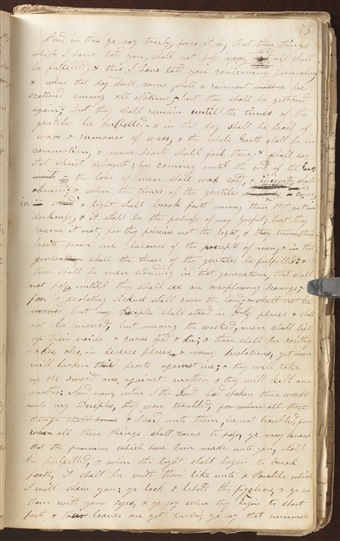 23
And in this ye say truly, for so it is; but these things
which I have told you, shall not pass away, until all shall
be fulfilled, & this I have told you concerning Jerusalem
& when that day shall come, shall a remnant be
scattered among all Nations, but they shall be gathered
again; but they shall remain until the times of the
gentiles be fulfilled: & in that day shall be heard of
wars & rumours of wars, & the whole Earth shall be in
commotion, & mens hearts shall fail them, & shall say
that Christ delayeth his coming until the end of the Earth
& the love of men shall wax cold, & iniquity shall
abound; & when the times of the gentiles is come
in a light shall break forth among them that sit in
darkness, & it shall be the fulness of my gospel; but they
receive it not, for they perceive not the light, & they turn their
hearts from me because of the precepts of men, & in that
generation shall the times of the gentiles be fulfilled; &
there shall be men standing in that generation, that shall
not pass, untill they shall see an overflowing scourge,
for a desolating sickness shall cover the land;
but my Deciples shall stand in Holy places & shall
not be moved, but among the wicked, men shall lift
up their voices & curse God & die; & there shall be earthqu
akes, also, in diverse places, & many desolations, yet men
will harden their hearts against me; & they will take
up the sword one against another & they will kill one
another; And now, when I the Lord had spoken these words
unto my Deciples, they were troubled,
& I said unto them, be not troubled, for
when all these things shall come to pass, ye may know
that the promises which have been made unto you, shall
be fulfilled, & when the light shall begin to break
forth, it shall be with them like unto a Parable which
I will shew you; ye look & behold the figtrees, & ye see
them with your eyes, & ye say when they begin to shoot
forth & their leaves are yet tender, ye say that summer